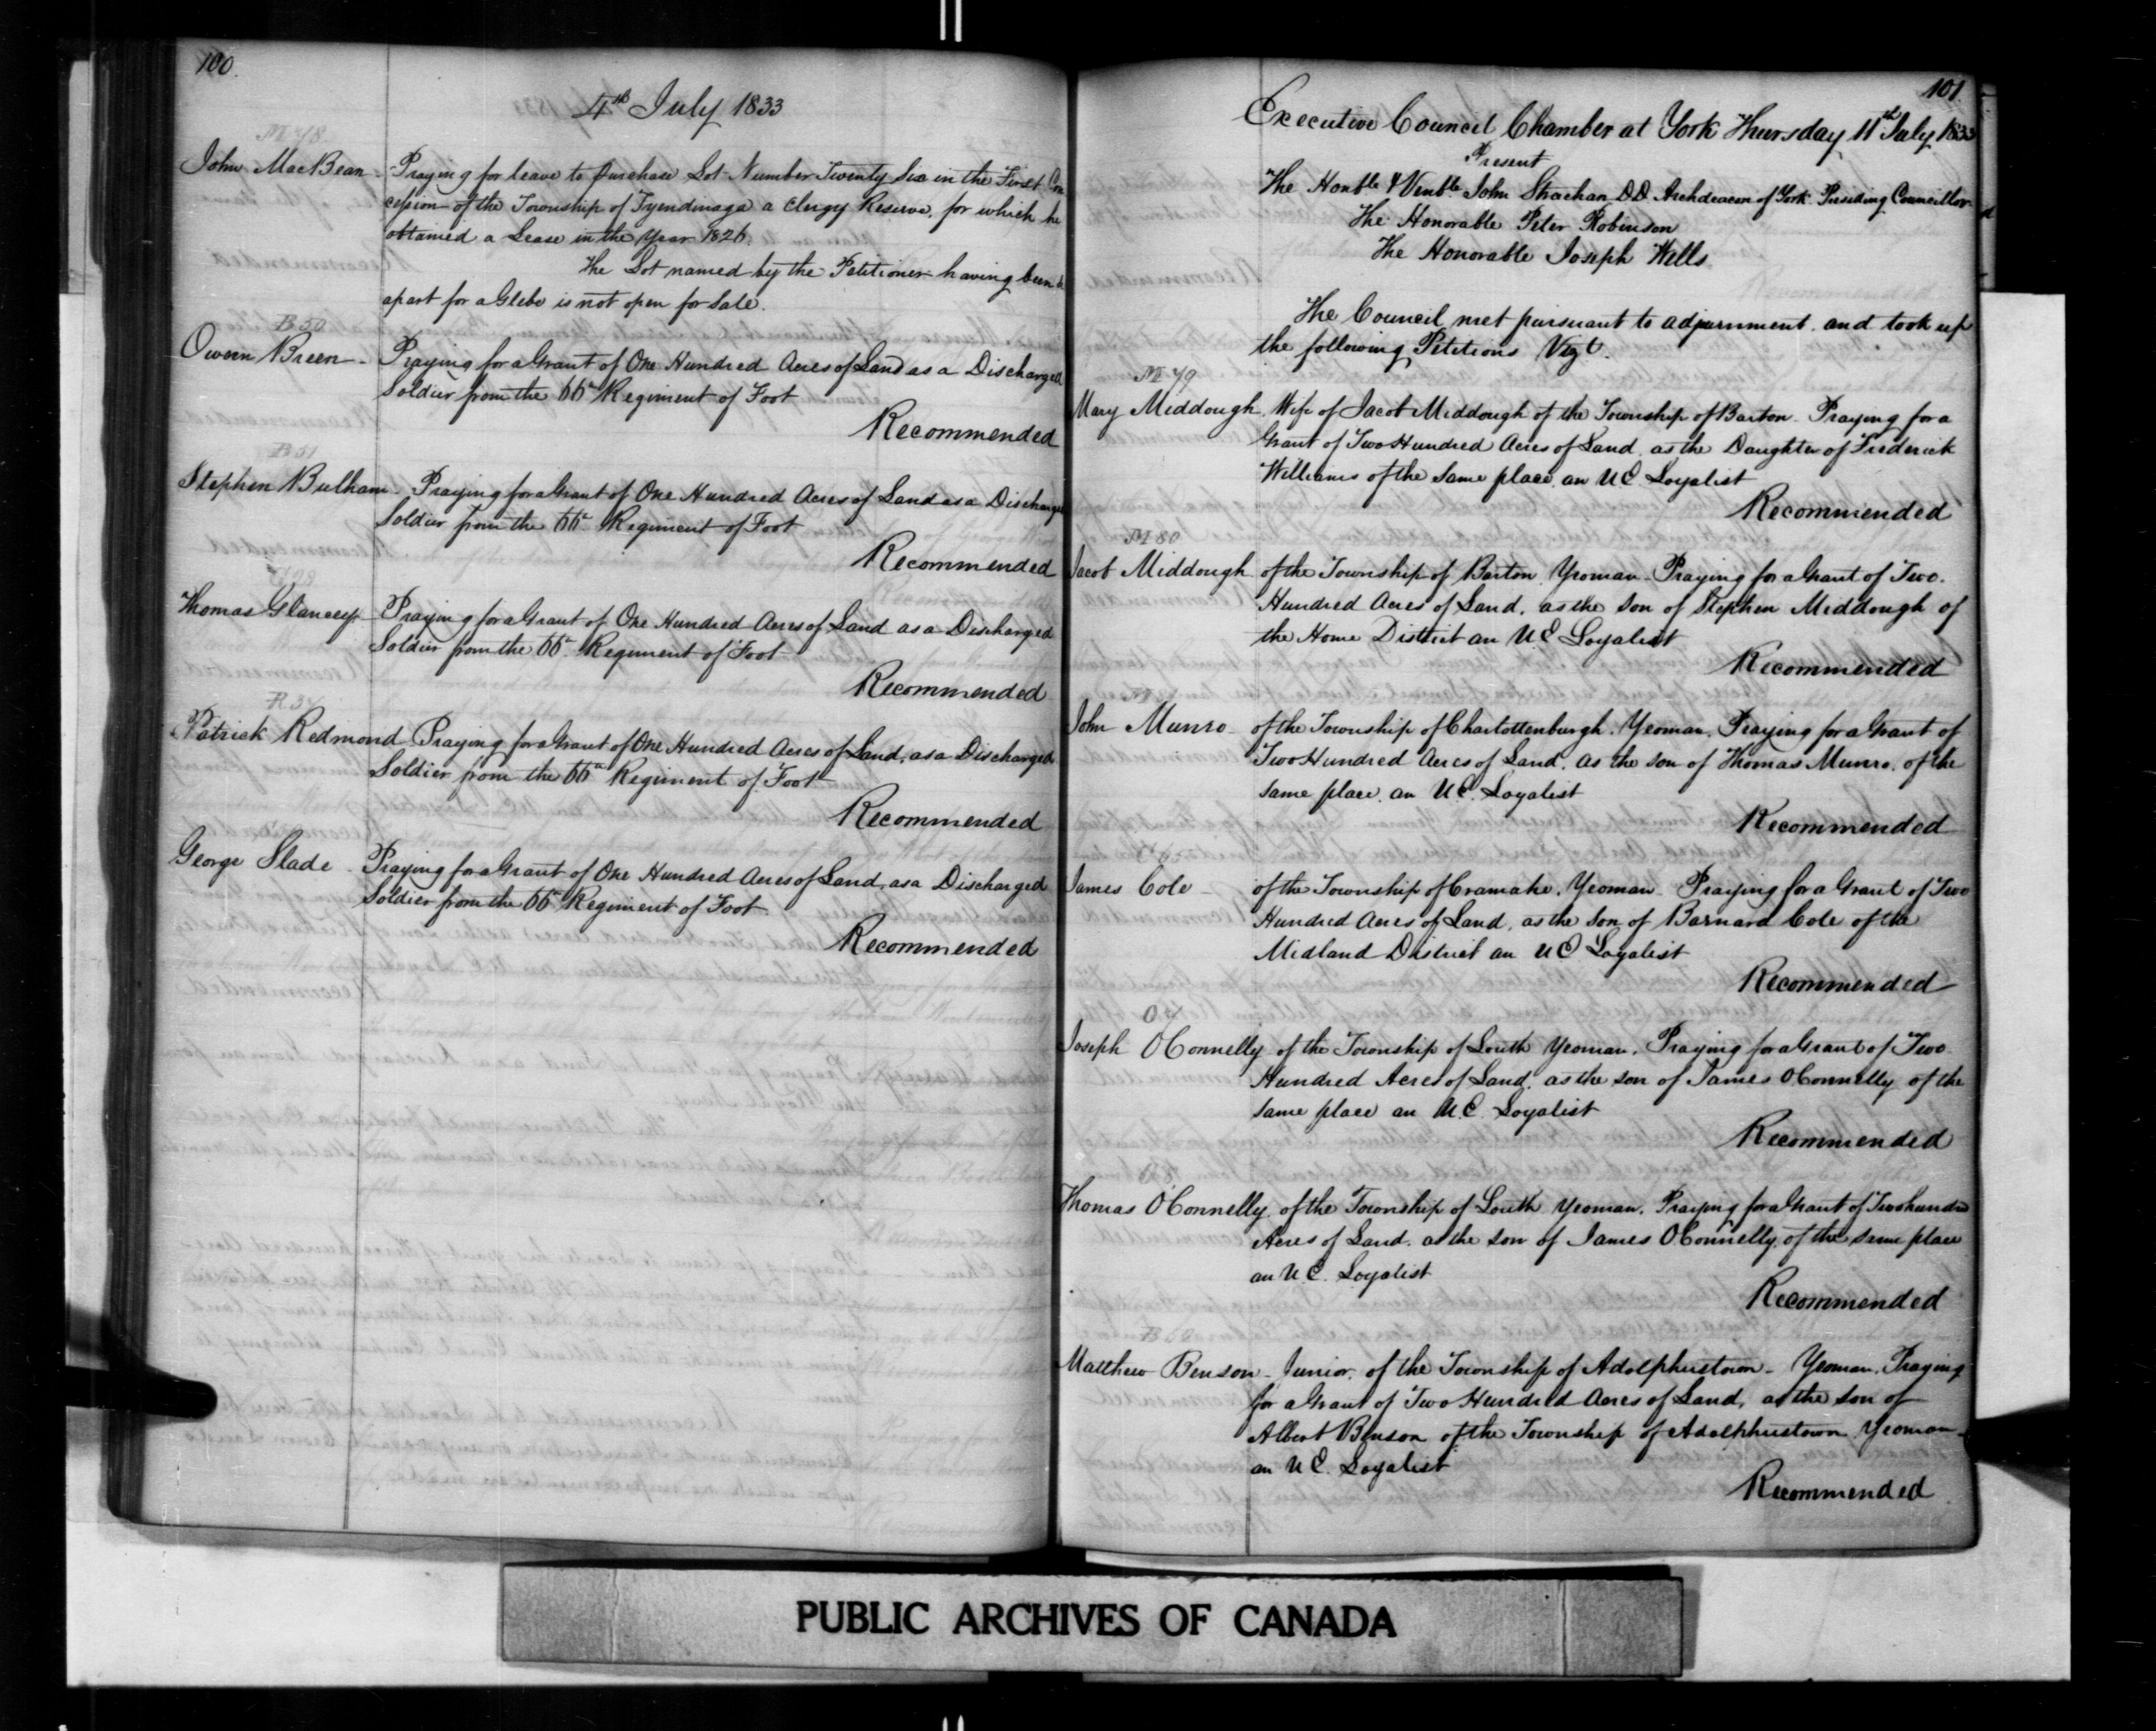 100.
4th July 1833
M 78
John MacBean - Praying for leave to purchase Lot Number Twenty Six in the First Con
cession of the Township of Tyendinaga a Clergy Reserve, for which he
obtained a Lease in the Year 1826.
The Lot named by the Petitioner having been
apart for a Glebe is not open for Sale.
B 50
Owen Breen - Praying for a Grant of One Hundred Acres of Land as a Discharged
Soldier from the 66th Regiment of Foot
Recommended
B 51
Stephen Bulham - Praying for a Grant of One Hundred Acres of Land as a Discharged
Soldier from the 66th Regiment of Foot
Recommended
Thomas Glancey - Praying for a Grant of One Hundred Acres of Land as a Discharged
Soldier from the 66th Regiment of Foot
Recommended
Patrick Redmond Praying for a Grant of One Hundred Acres of Land, as a Discharged
Soldier from the 66th Regiment of Foot
Recommended
George Slade - Praying for a Grant of One Hundred Acres of Land, as a Discharged
Soldier from the 66th Regiment of Foot
Recommended
101
Executive Council Chamber at York Thursday 11th July 1833
Present
The Honble & Venble John Strachan D.D. Archdeacon of York Presiding Councillor
The Honorable Peter Robinson
The Honorable Joseph Wells
The Council met pursuant to adjournment and took up
the following Petitions Vizt.
M 79
Mary Middough, Wife of Jacob Middough of the Township of Barton Praying for a
Grant of Two Hundred Acres of Land as the Daughter of Frederick
Williams of the same place an U E Loyalist
Recommended
M 80
Jacob Middough of the Township of Barton Yeoman - Praying for a Grant of Two
Hundred Acres of Land, as the son of Stephen Middough of
the Home District an U. E Loyalist
Recommended
John Munro of the Township of Charlottenburgh, Yeoman, Praying for a Grant of
Two Hundred Acres of Land, as the son of Thomas Munro, of the
same place, an U.E. Loyalist
Recommended
James Cole - of the Township of Cramahe, Yeoman Praying for a Grant of Two
Hundred Acres of Land, as the Son of Barnard Cole of the
Midland District an U E Loyalist
Recommended
O 7
Joseph OConnelly of the Township of Louth Yeoman, Praying for a Grant of Two
Hundred Acres of Land, as the son of James OConnelly of the
same place an U.E. Loyalist
Recommended
O 8
Thomas OConnelly of the Township of Louth Yeoman, Praying for a Grant of Two hundred
Acres of Land as the son of James OConnelly, of the same place
an U.E. Loyalist
Recommended
Matthew Benson - Junior, of the Township of Adolphustown - Yeoman, Praying
for a Grant of Two Hundred Acres of Land, as the son of
Albert Benson of the Township of Adolphustown Yeoman -
an U E. Loyalist
Recommended
PUBLIC ARCHIVES OF CANADA